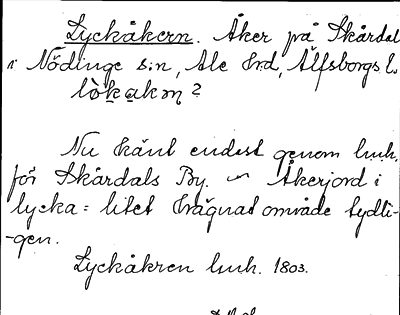 Lyckåkern. Åker på Skårdal
i Nödinge s:n, Ale Hrd, Älfsborgs l.
lök̬ak̬ɱ?
Nu känt endast genom luuh.
för Skårdals By. Åkerjord i
lycka = litet hägnat område tydli-
-gen.
Lyckåkren luuh. 1803.